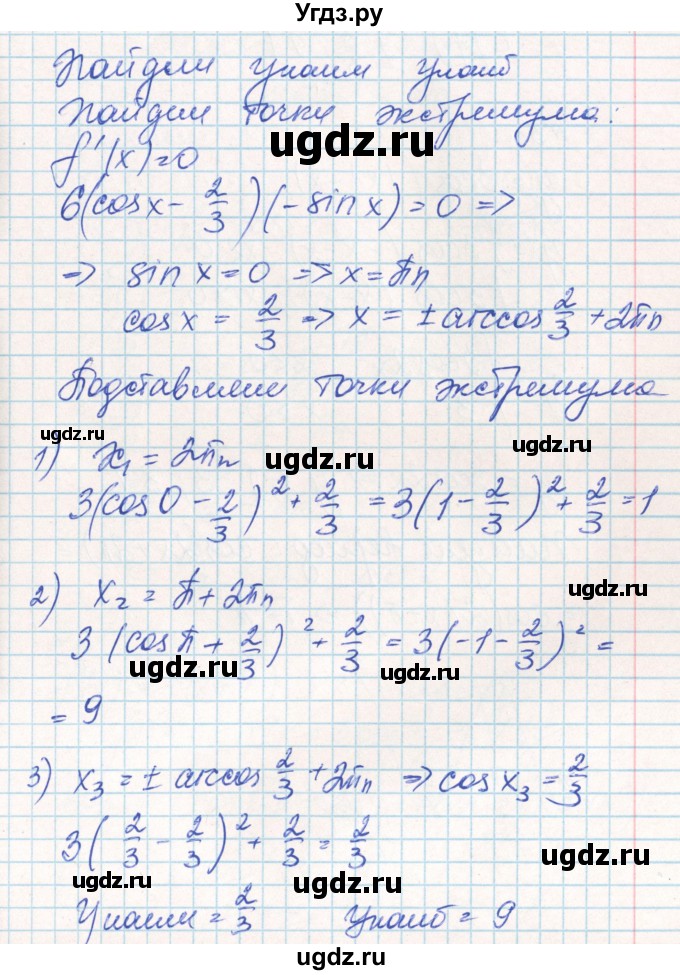 Угдз.ру
Найдем Yнаим Yнаиб
Найдем точки экстремума:
f'(x)=0
6(cosx - 2/3)(-sinx) = 0 =>
=> sin x = 0 => x = πn
cos x = 2/3 => x = ± arccos 2/3 + 2πn
Подставляем точки экстремума
ugdz.ru
ugdz.ru
ugdz.ru
1) x₁ = 2πn
3(cos0 - 2/3)² + 2/3 = 3(1 - 2/3)² + 2/3 = 1
ugdz.ru
2) x₂ = π + 2πn
3(cosπ + 2/3)² + 2/3 = 3(-1 - 2/3)² =
ugdz.ru
ugdz.ru
= 9
3) x₃ = ± arccos 2/3 + 2πn => cos x₃ = 2/3
3(2/3 - 2/3)² + 2/3 = 2/3
ugdz.ru
ugdz.ru
Yнаим = 2/3 Yнаиб = 9
ugdz.ru
ugdz.ru